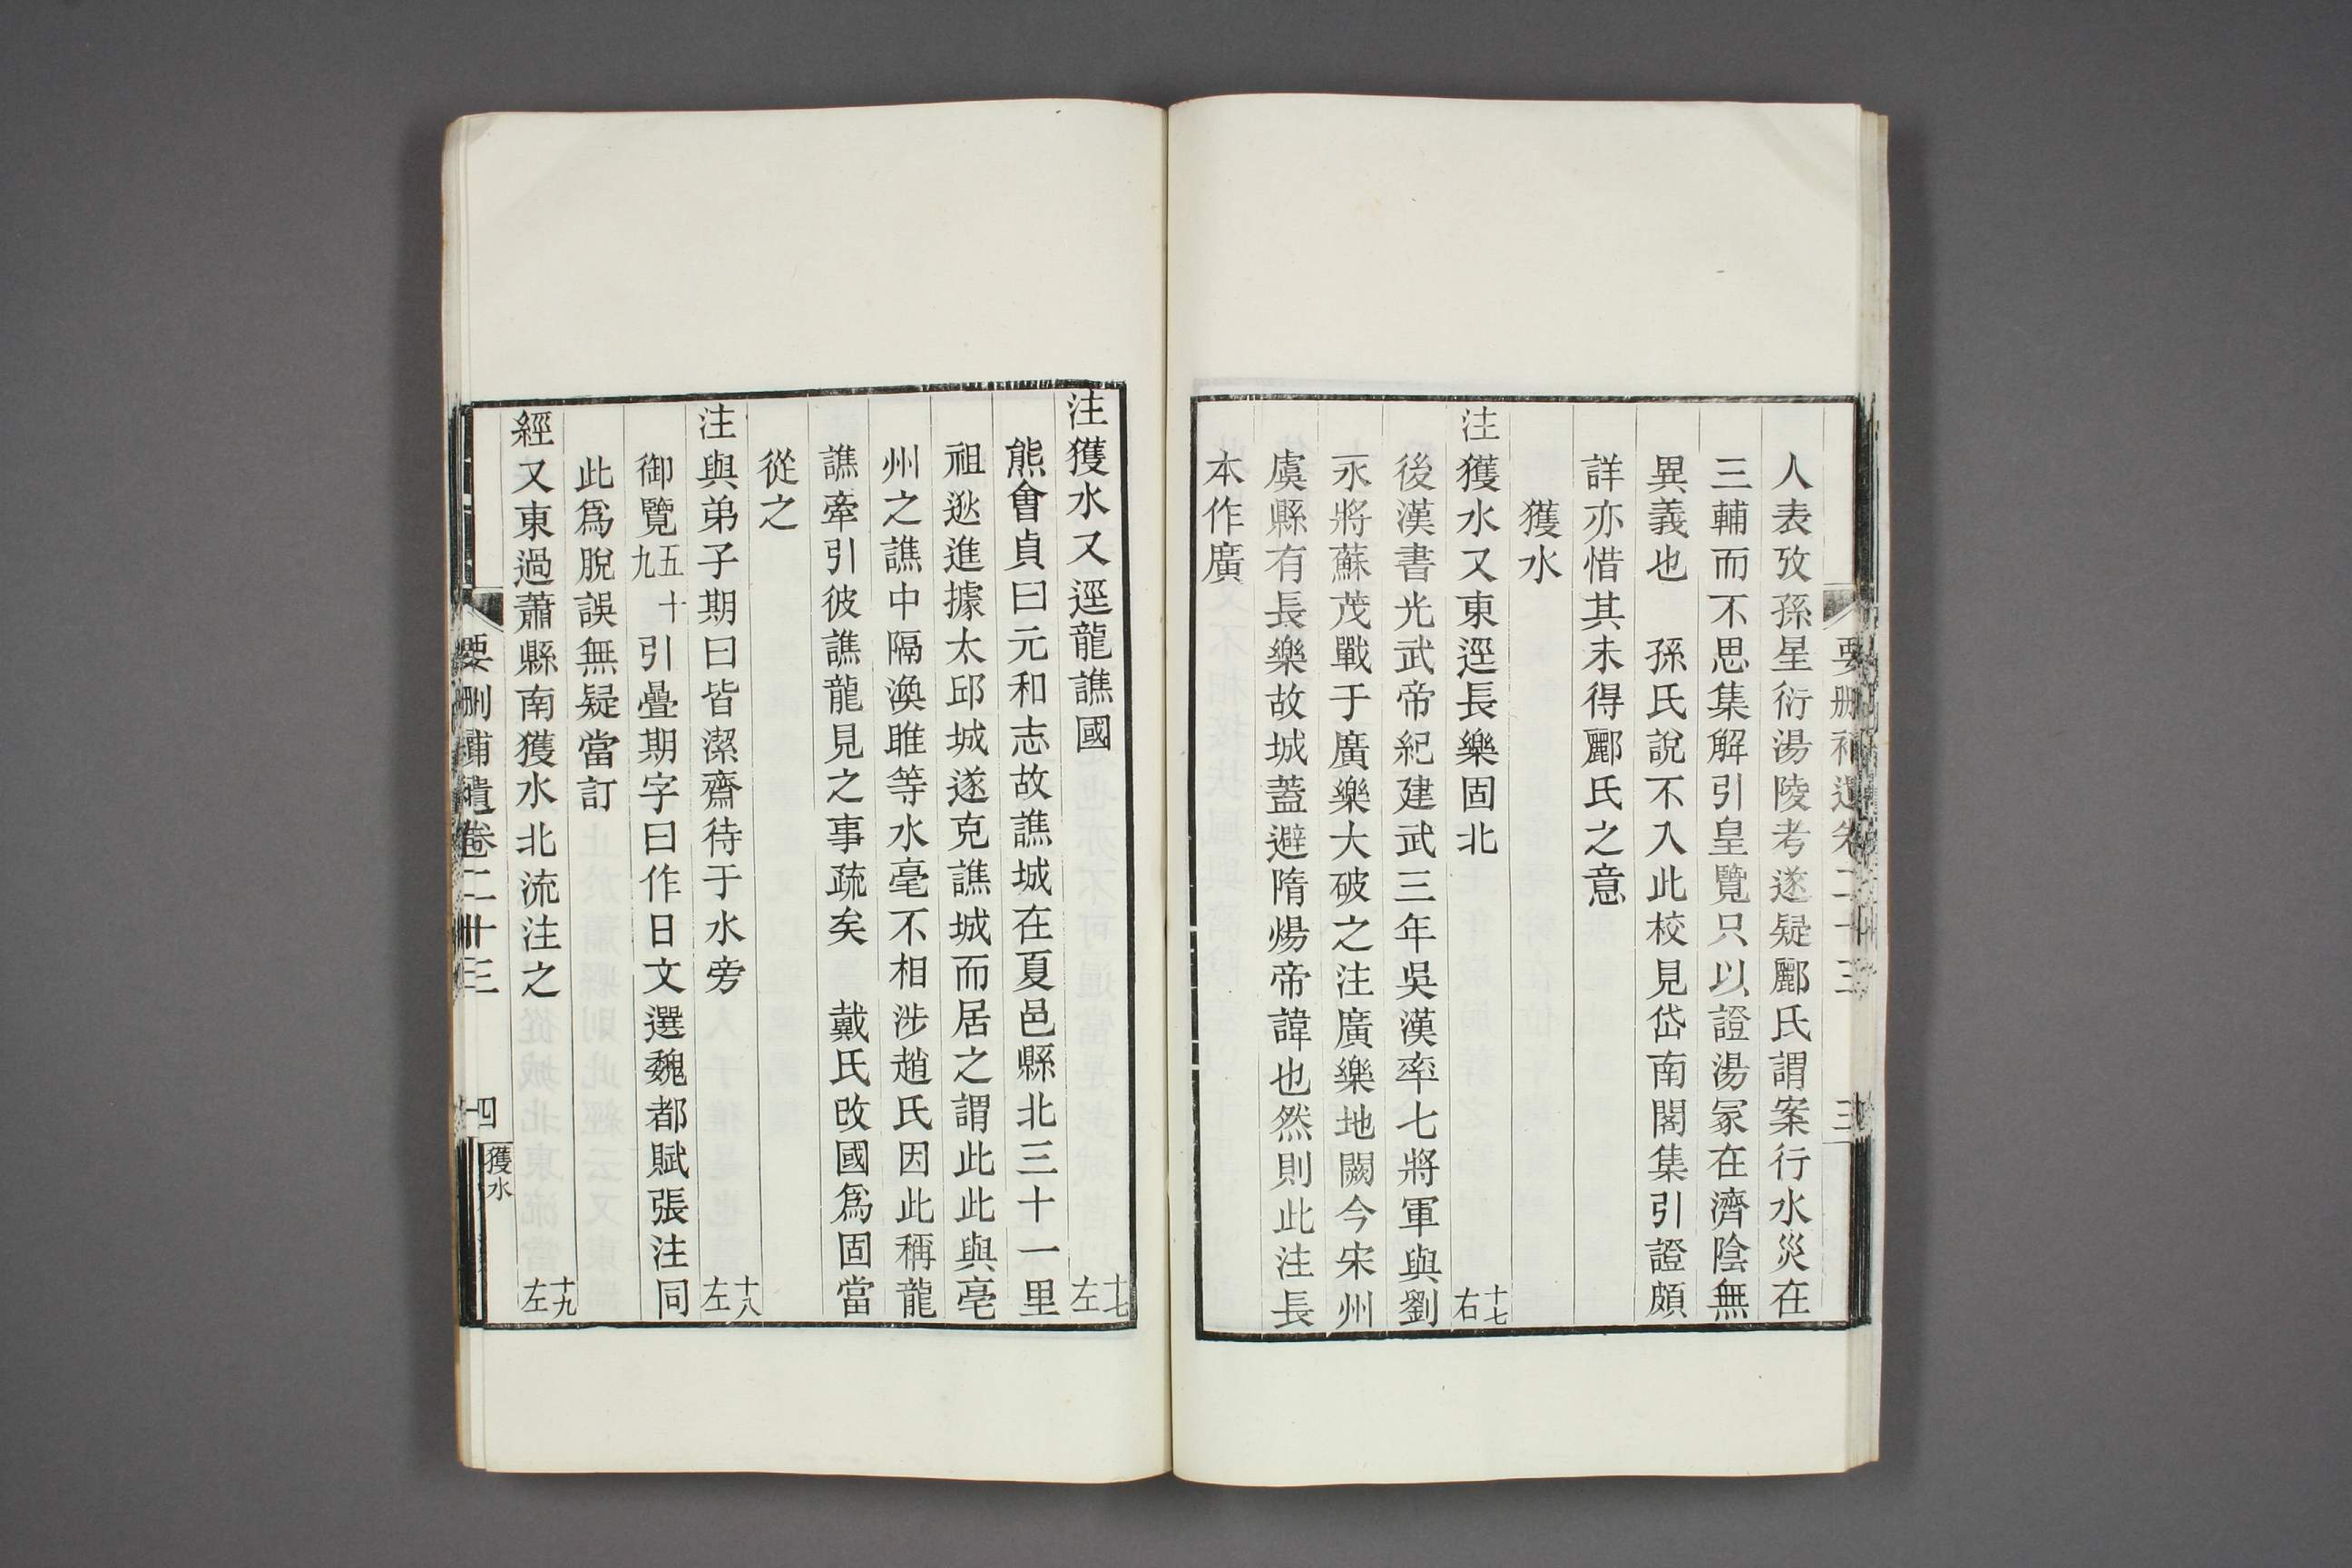 要刪補遺卷二十三 三
人表攷孫星衍湯陵考遂疑酈氏謂案行水災在
三輔而不思集解引皇覽只以證湯冢在濟陰無
異義也 孫氏說不入此校見岱南閣集引證頗
詳亦惜其未得酈氏之意
獲水
注獲水又東逕長樂固北 十七右
後漢書光武帝紀建武三年吳漢率七將軍與劉
永將蘇茂戰于廣樂大破之注廣樂地闕今宋州
虞縣有長樂故城蓋避隋煬帝諱也然則此注長
本作廣
注獲水又逕龍譙國 十七左
熊會貞曰元和志故譙城在夏邑縣北三十一里
祖逖進據太邱城遂克譙城而居之謂此此與亳
州之譙中隔渙睢等水毫不相涉趙氏因此稱龍
譙牽引彼譙龍見之事疏矣 戴氏改國爲固當
從之
注與弟子期曰皆潔齋待于水旁 十八左
御覽五十九引疊期字曰作日文選魏都賦張注同
此爲脫誤無疑當訂
經又東過蕭縣南獲水北流注之 十九左
要刪補遺卷二十三 四 獲水